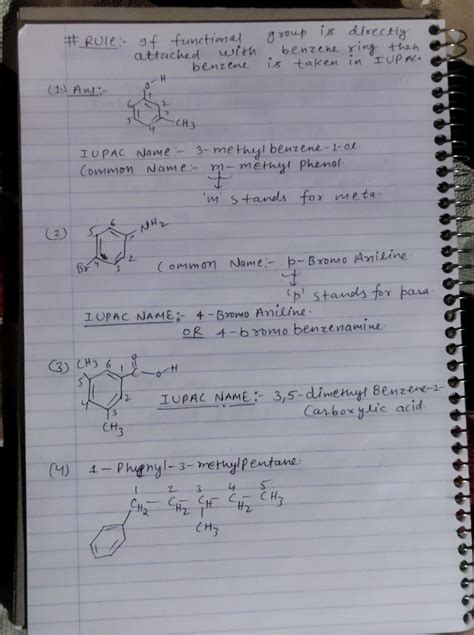 # RULE:- gf functional group is directly
attached with benzene ring then
benzene is taken in IUPAC.
(1) Ans:-
O-H
1
6 2
5 3
4 CH3
IUPAC Name:- 3-methyl benzene-1-ol
Common Name:- m-methyl Phenol.
'm' stands for meta.
(2)
6 NH2
5 1
Br 4 2
3
Common Name:- p-Bromo Aniline
'p' stands for para.
IUPAC NAME:- 4-Bromo Aniline.
OR 4-bromo benzenamine.
(3)
CH3 6 O
5 1 C O-H
4 2
3
CH3
IUPAC NAME:- 3,5-dimethyl Benzene-1-
Carboxylic acid.
(4) 1-Phynyl-3-methylPentane.
1 2 3 4 5
CH2-CH2-CH-CH2-CH3
CH3